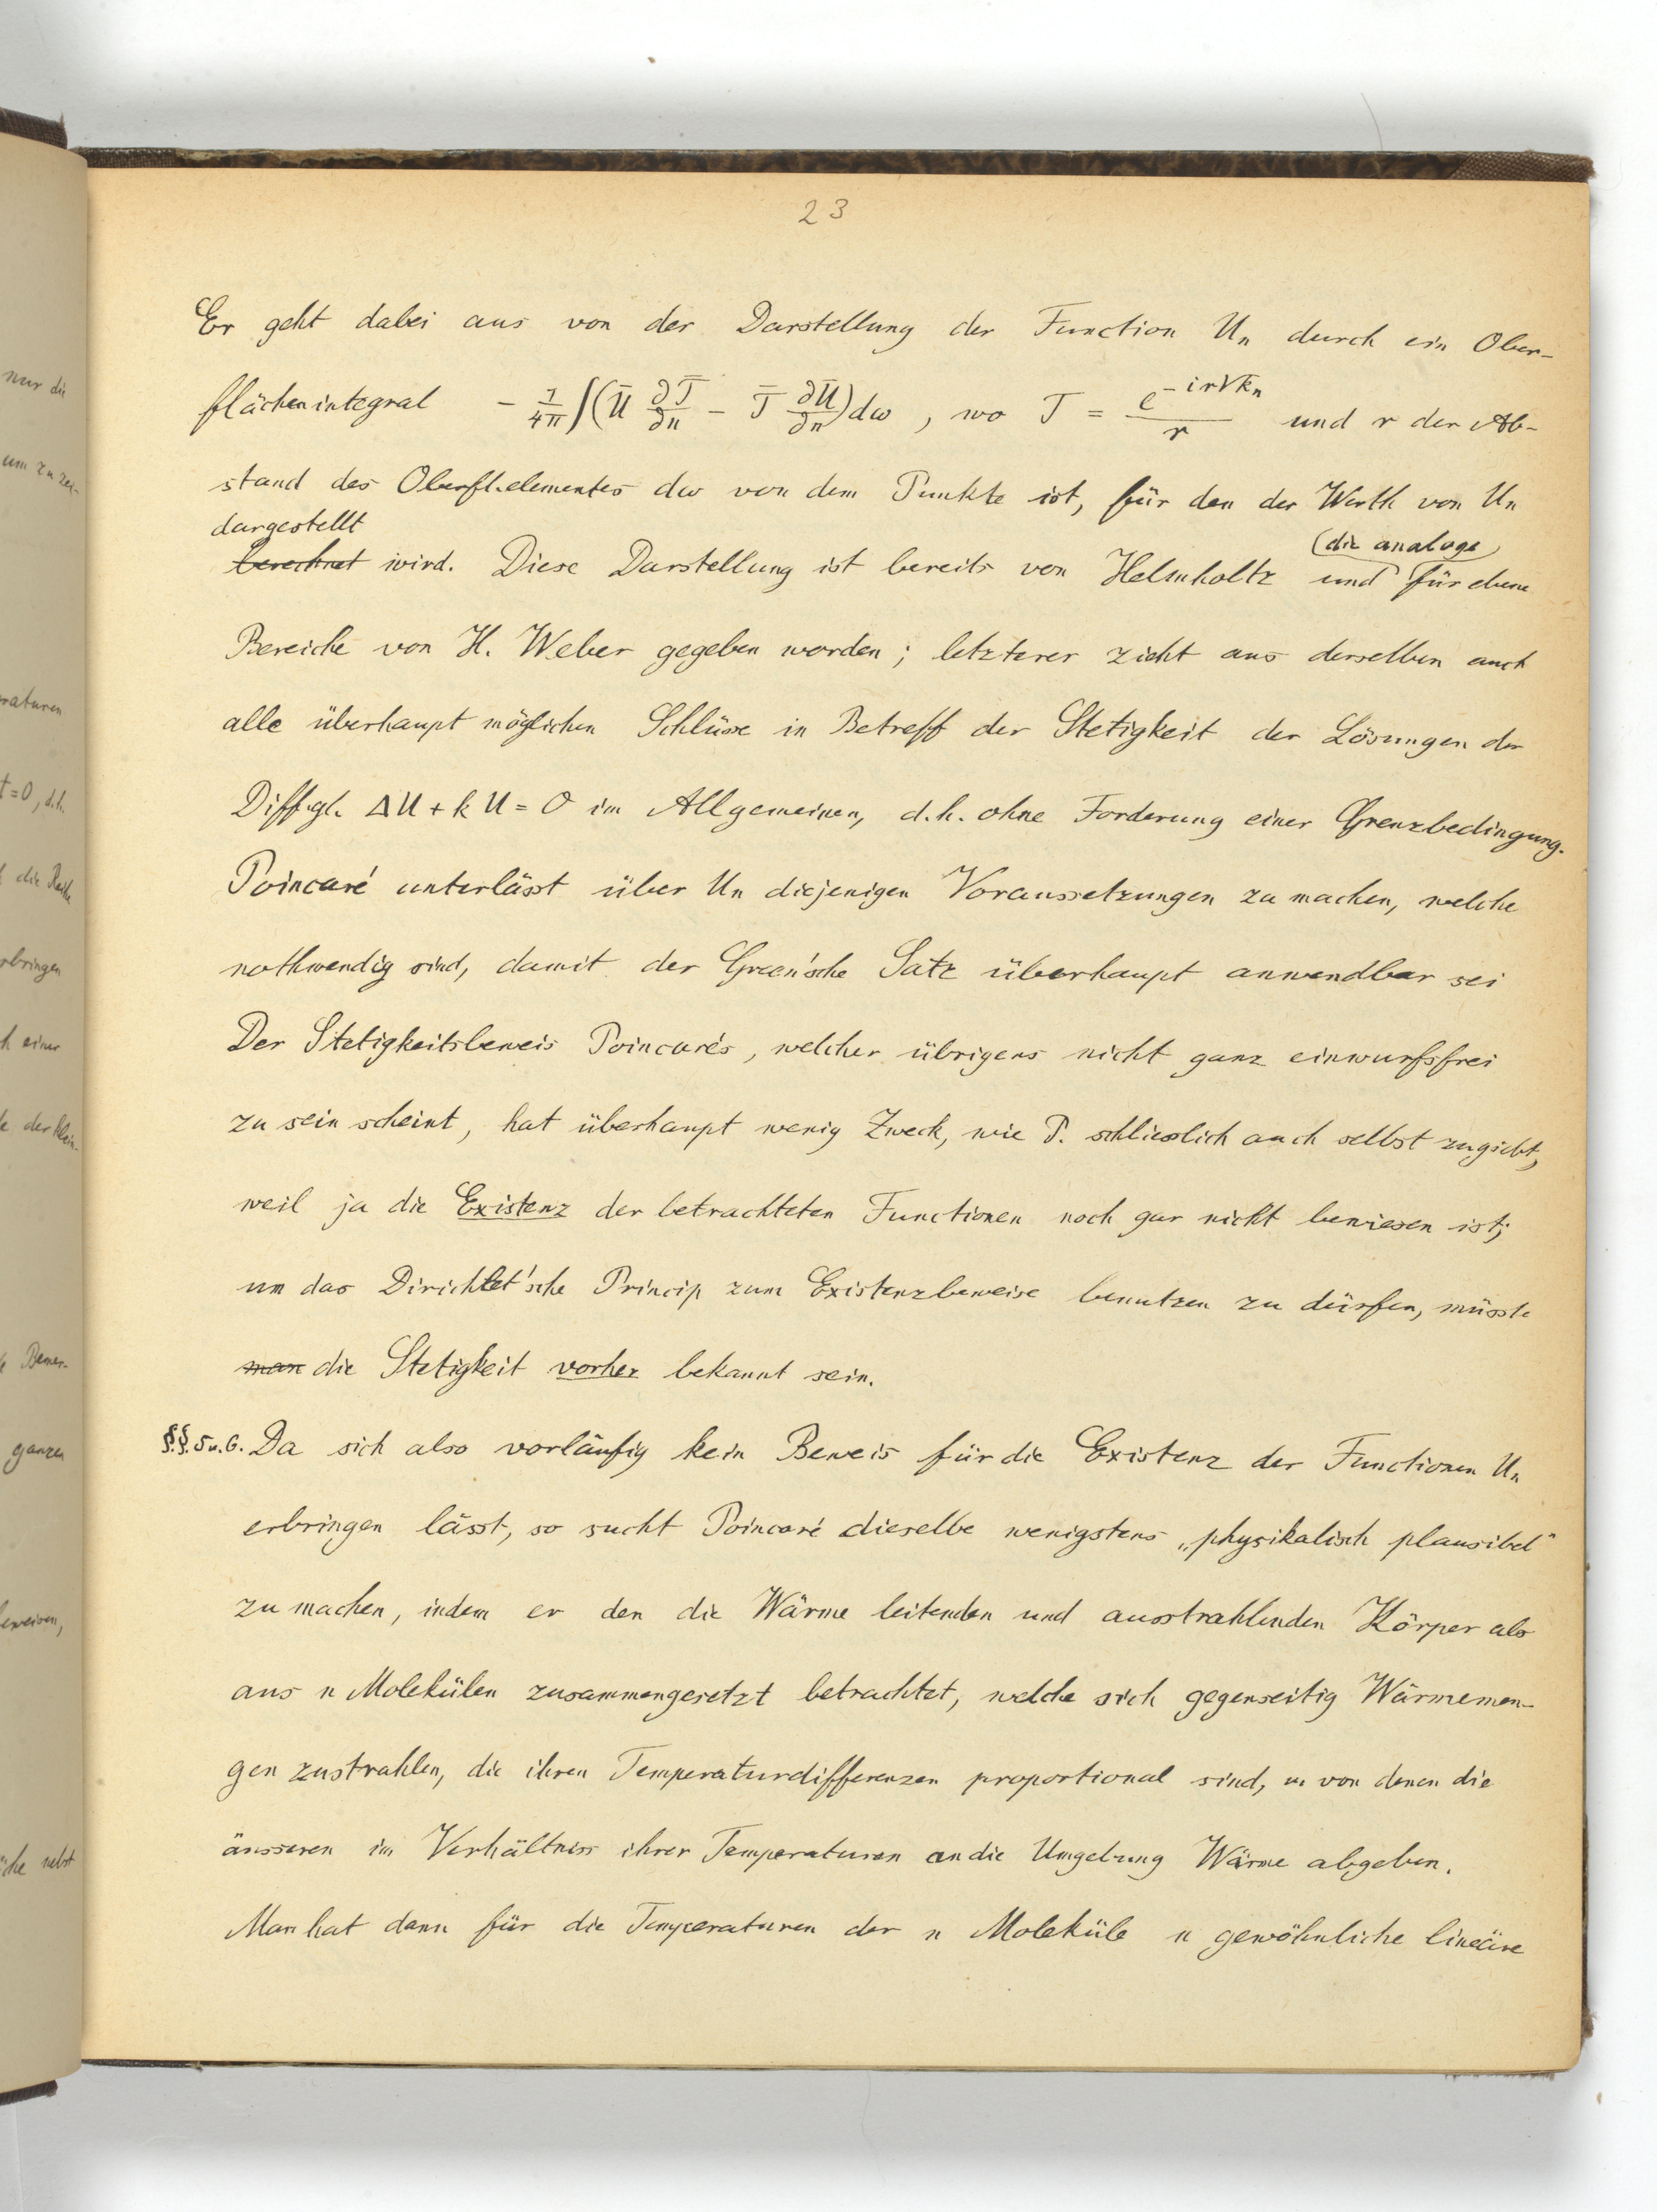 23
Er geht dabei aus von der Darstellung der Function Uₙ durch ein Ober-
flächenintegral − 1/4π ∫(Ū ∂T̄/∂n − T̄ ∂Ū/∂n) dω , wo T = e^(−ir√kₙ)/r und r der Ab-
stand des Oberfl.elementes dω von dem Punkte ist, für den der Werth von Uₙ
dargestellt
berechnet wird. Diese Darstellung ist bereits von Helmholtz und (die analoge) für ebene
Bereiche von H. Weber gegeben worden; letzterer zieht aus derselben auch
alle überhaupt möglichen Schlüsse in Betreff der Stetigkeit der Lösungen der
Diff.gl. ΔU + kU = 0 im Allgemeinen, d.h. ohne Forderung einer Grenzbedingung.
Poincaré unterlässt über Uₙ diejenigen Voraussetzungen zu machen, welche
nothwendig sind, damit der Green'sche Satz überhaupt anwendbar sei
Der Stetigkeitsbeweis Poincaré's, welcher übrigens nicht ganz einwurfsfrei
zu sein scheint, hat überhaupt wenig Zweck, wie P. schliesslich auch selbst zugiebt,
weil ja die Existenz der betrachteten Functionen noch gar nicht bewiesen ist;
um das Dirichlet'sche Princip zum Existenzbeweise benutzen zu dürfen, müsste
man die Stetigkeit vorher bekannt sein.
§.§. 5 u. 6. Da sich also vorläufig kein Beweis für die Existenz der Functionen Uₙ
erbringen lässt, so sucht Poincaré dieselbe wenigstens „physikalisch plausibel"
zu machen, indem er den die Wärme leitenden und ausstrahlenden Körper als
aus n Molekülen zusammengesetzt betrachtet, welche sich gegenseitig Wärmemen-
gen zustrahlen, die ihren Temperaturdifferenzen proportional sind, u. von denen die
äusseren im Verhältniss ihrer Temperaturen an die Umgebung Wärme abgeben.
Man hat dann für die Temperaturen der n Moleküle n gewöhnliche lineäre
nur die
um zu zei-
raturen
t=0, d.h.
die Reihe
rbringen
h einer
der klein-
Bemer-
ganzen
beweisen,
nebst